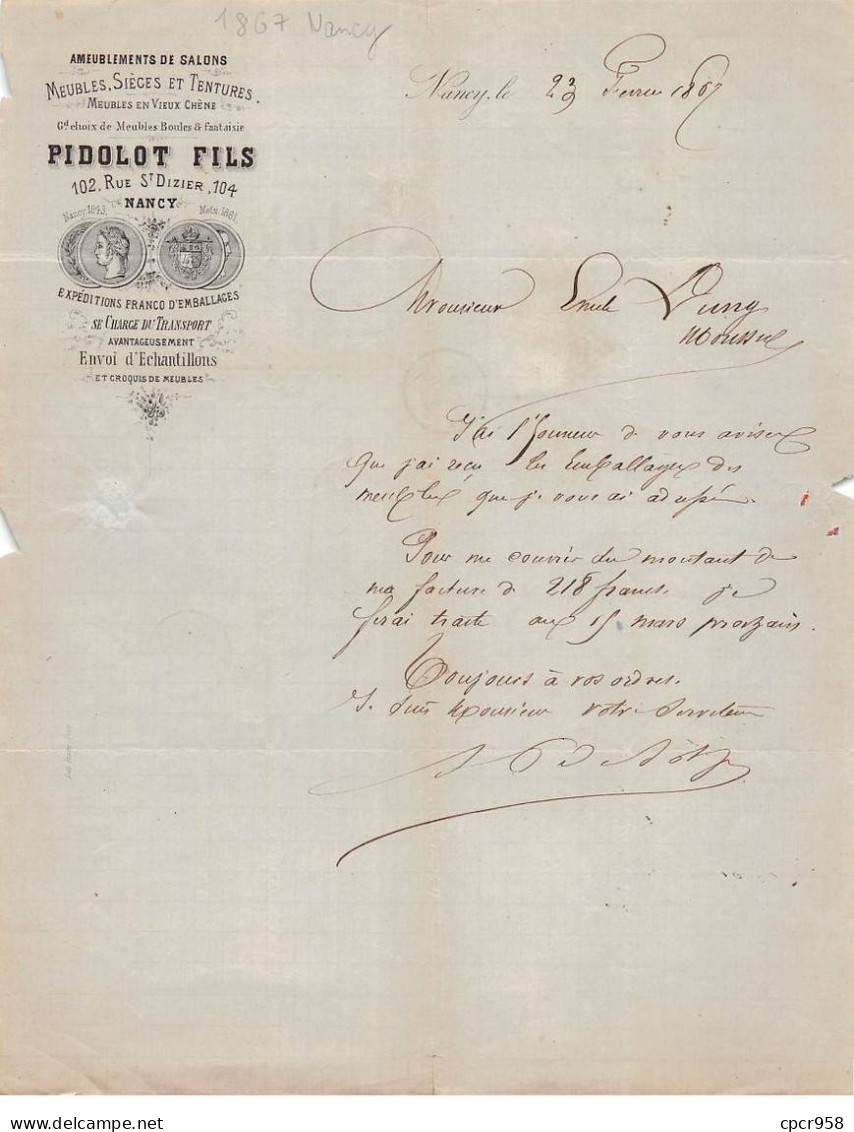 1867 Nancy
AMEUBLEMENTS DE SALONS
MEUBLES, SIÈGES ET TENTURES
MEUBLES EN VIEUX CHÊNE
Gd choix de Meubles Boules & fantaisie
PIDOLOT FILS
102, RUE ST DIZIER, 104
NANCY
Nancy 1843 Metz 1861
EXPÉDITIONS FRANCO D'EMBALLAGES
SE CHARGE DU TRANSPORT
AVANTAGEUSEMENT
Envoi d'Echantillons
ET CROQUIS DE MEUBLES
Nancy, le 23 Fevrier 1867
Monsieur Emile
J'ai l'honneur de vous aviser
que j'ai reçu les Emballages des
meubles que je vous ai
Pour me couvrir du montant de
ma facture de 218 francs je
ferai traite aux 15 mars prochain.
Toujours à vos ordres.
Je suis Monsieur votre serviteur
cpcr958